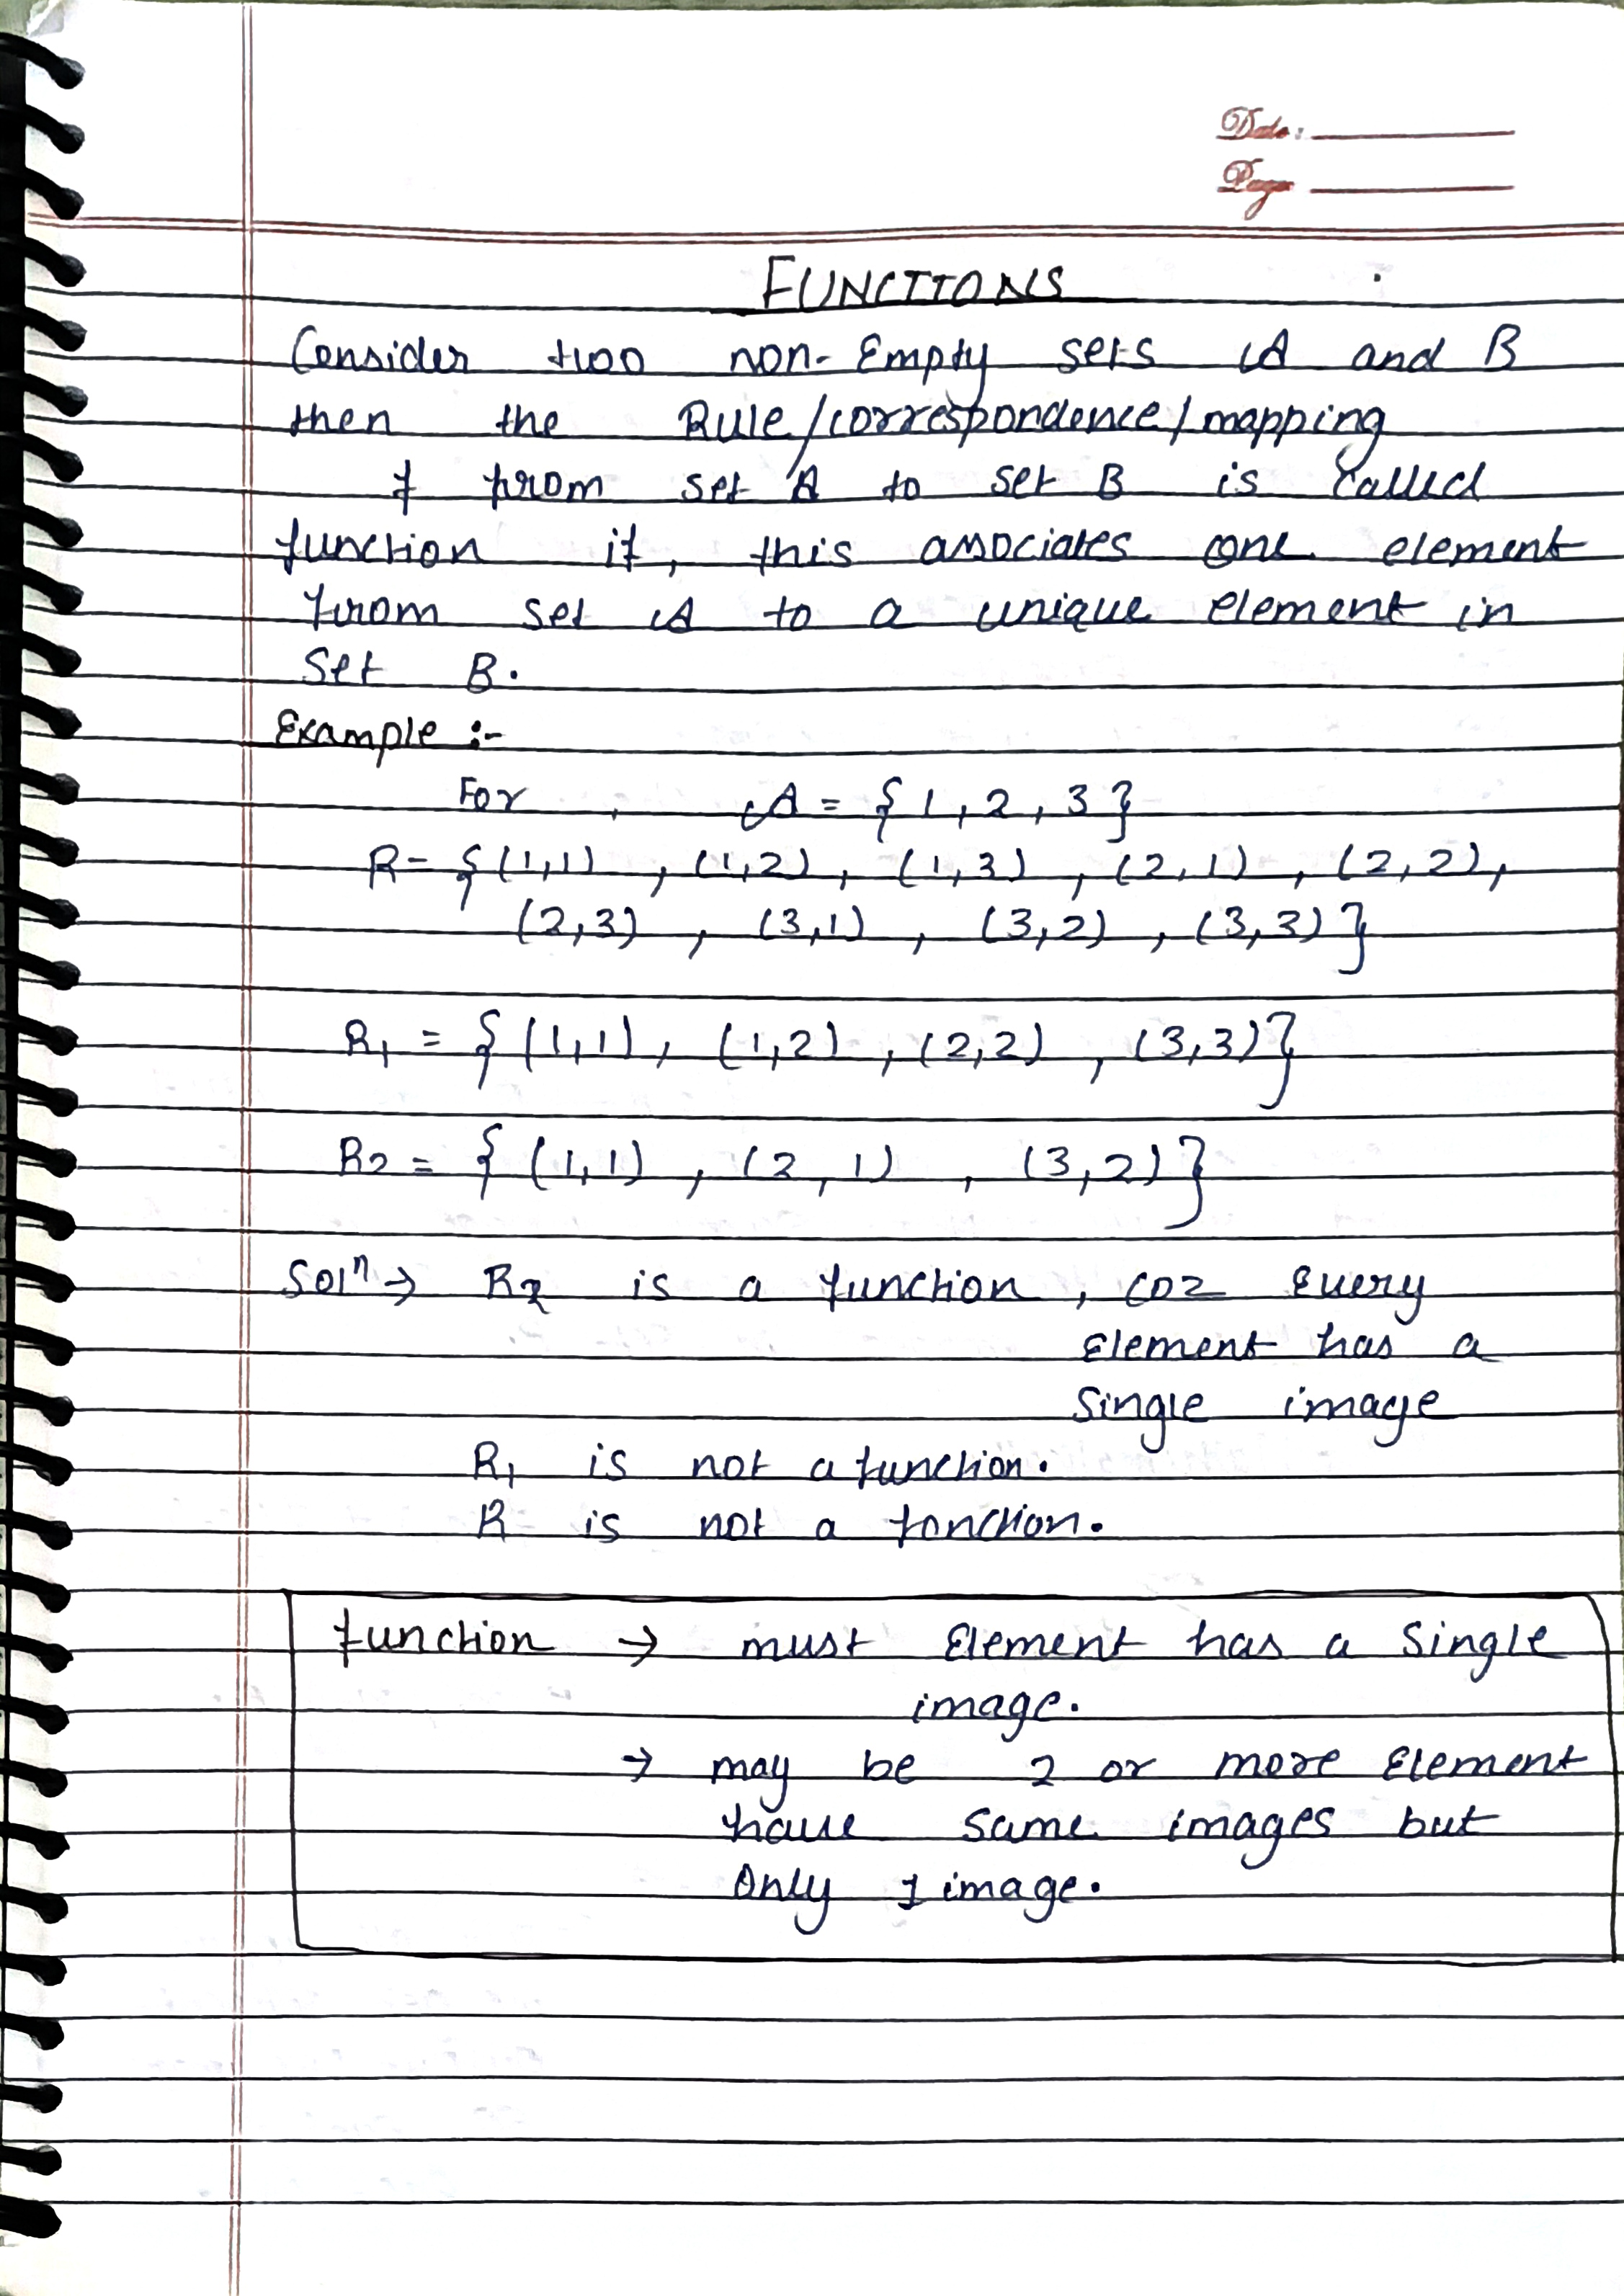 Date:
Page
FUNCTIONS
Consider two non-Empty sets A and B
then the Rule/correspondence/mapping
f from set A to set B is called
function if, this associates one element
from set A to a unique element in
Set B.
Example :-
For , A = {1, 2, 3}
R = {(1,1) , (1,2) , (1,3) , (2,1) , (2,2),
(2,3) , (3,1) , (3,2) , (3,3)}
R₁ = {(1,1), (1,2) , (2,2) , (3,3)}
R2 = {(1,1) , (2,1) , (3,2)}
Solⁿ → R2 is a function, coz Every
Element has a
Single image
R₁ is not a function.
R is not a fonction.
function → must Element has a Single
image.
→ may be 2 or more Element
have same images but
Only 1 image.